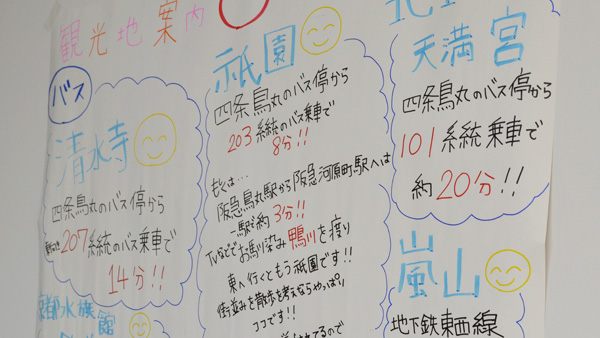 観光地案内
バス
清水寺
四条烏丸のバス停から
207系統のバス乗車で
14分!!
京都水族館
祇園
四条烏丸のバス停から
203系統のバス乗車で
8分!!
もしくは…
阪急烏丸駅から阪急河原町駅へは
一駅を約3分!!
TVなどでお馴染み鴨川を渡り
東へ行くともう祇園です!!
街並みを散歩を考えるならやっぱり
ココです!!
天満宮
四条烏丸のバス停から
101系統乗車で
約20分!!
嵐山
地下鉄東西線